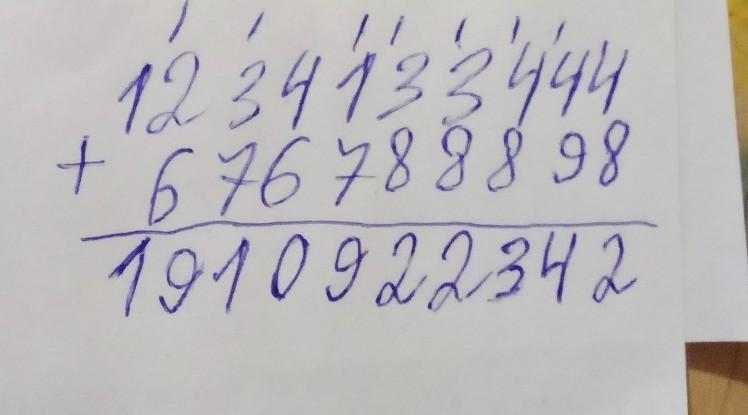 1 1 1 1 1 1 1
1234133444
+ 676788898
1910922342